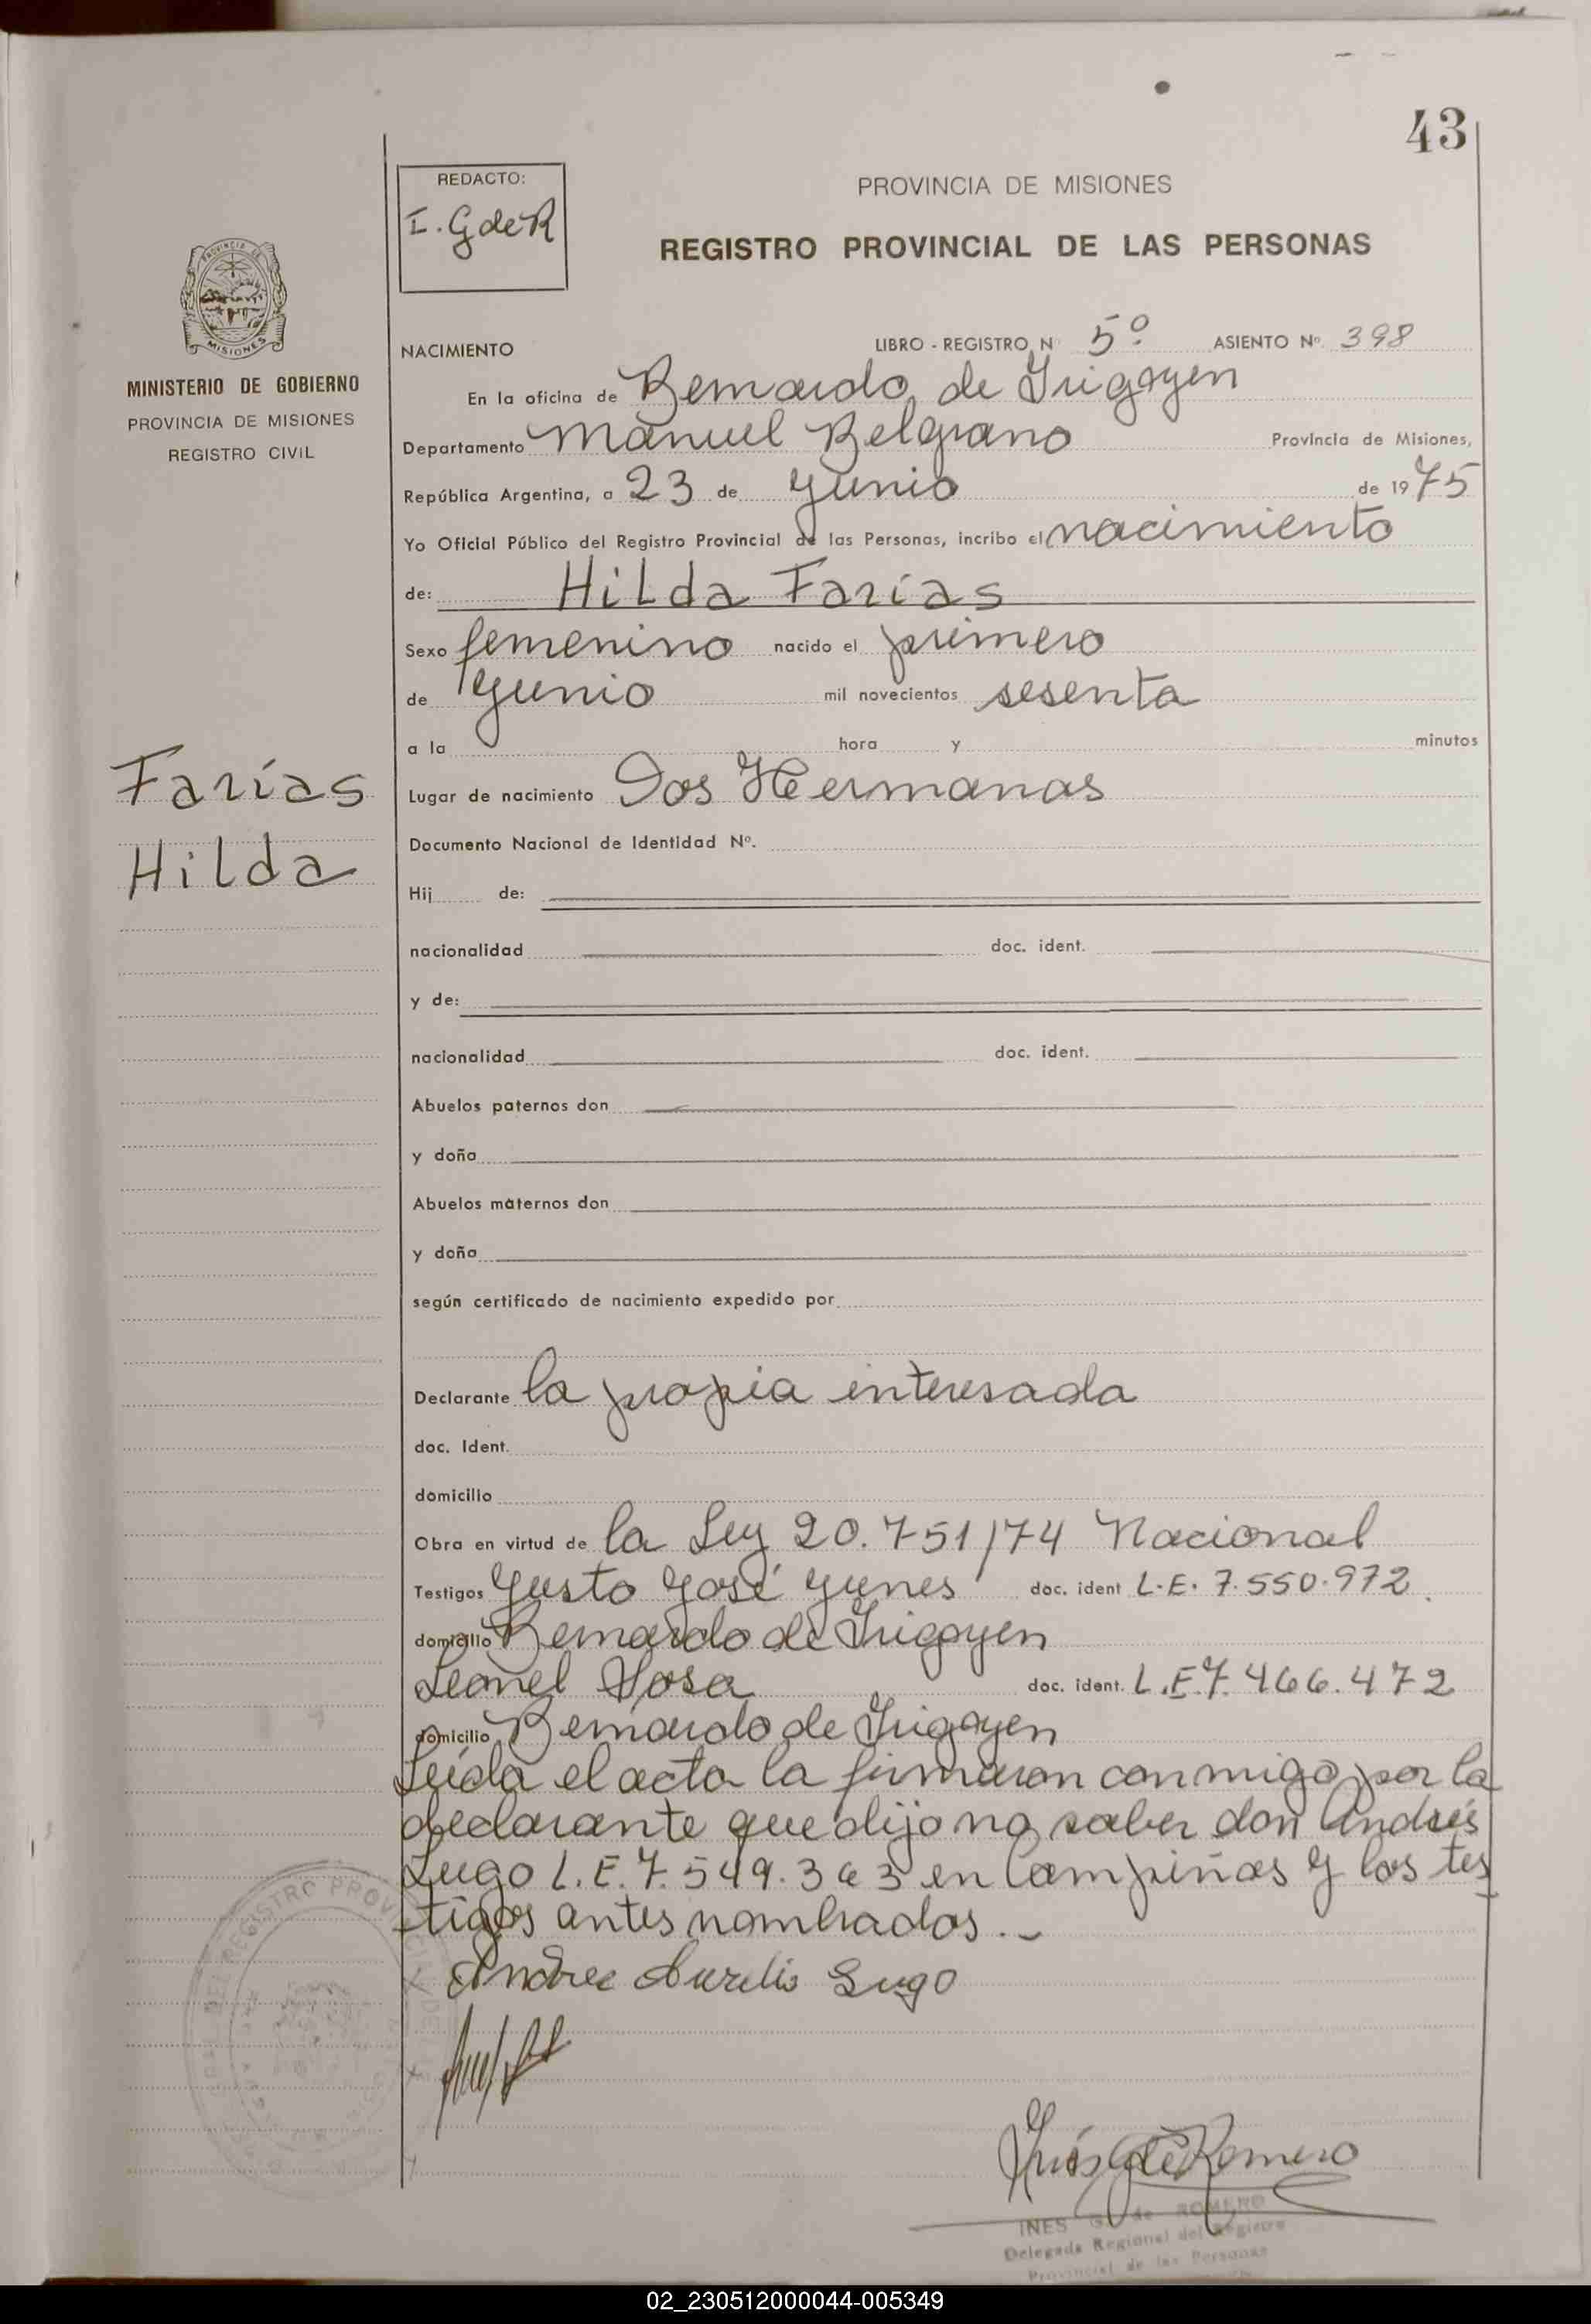 43
REDACTO:
I. G de R
PROVINCIA DE MISIONES
REGISTRO PROVINCIAL DE LAS PERSONAS
MISIONES
MINISTERIO DE GOBIERNO
PROVINCIA DE MISIONES
REGISTRO CIVIL
NACIMIENTO LIBRO - REGISTRO N 5º ASIENTO Nº 398
En la oficina de Bernardo de Irigoyen
Departamento Manuel Belgrano Provincia de Misiones,
República Argentina, a 23 de Junio de 1975
Yo Oficial Público del Registro Provincial de las Personas, incribo el nacimiento
de: Hilda Farías
Sexo femenino nacido el primero
de Junio mil novecientos sesenta
a la hora y minutos
Farías
Hilda
Lugar de nacimiento Dos Hermanas
Documento Nacional de Identidad Nº.
Hij de:
nacionalidad doc. ident.
y de:
nacionalidad doc. ident.
Abuelos paternos don
y doña
Abuelos maternos don
y doña
según certificado de nacimiento expedido por
Declarante la propia interesada
doc. Ident.
domicilio
Obra en virtud de la Ley 20.751/74 Nacional
Testigos Justo José Yunes doc. ident L.E. 7.550.972
domicilio Bernardo de Irigoyen
Leonel Sosa doc. ident. L.E 7.466.472
domicilio Bernardo de Irigoyen
Leída el acta la firmaron conmigo por la
declarante que dijo no saber don Andrés
Lugo L.E. 7.549.363 en Campiñas y los tes
tigos antes nombrados.-
Andres Aurelio Lugo
Inés G de Romero
INES G. de ROMERO
Delegada Regional del Registro
Provincial de las Personas
02_230512000044-005349